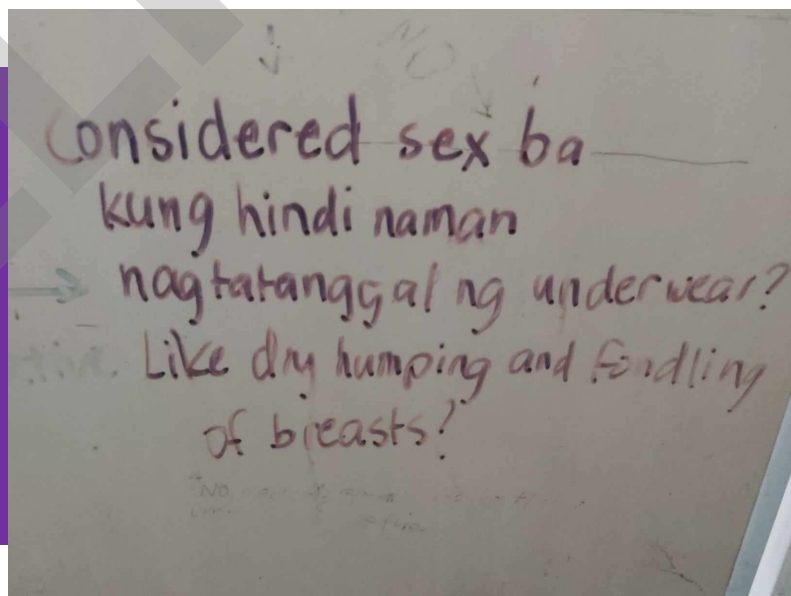 NO
Considered sex ba
kung hindi naman
nagtatanggal ng underwear?
Like dry humping and fondling
of breasts?
NO